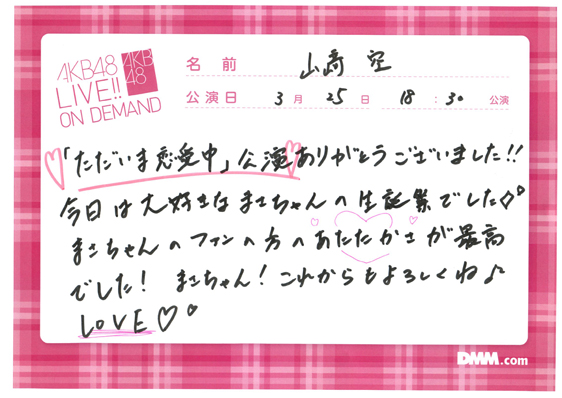 AKB48
LIVE!!
ON DEMAND
AKB
48
名前 山﨑 空
公演日 3月 25日 18:30 公演
「ただいま恋愛中」公演ありがとうございました!!
今日は大好きなまこちゃんの生誕祭でした
まこちゃんのファンの方のあたたかさが最高
でした! まこちゃん!これからもよろしくね♪
LOVE♡
DMM.com